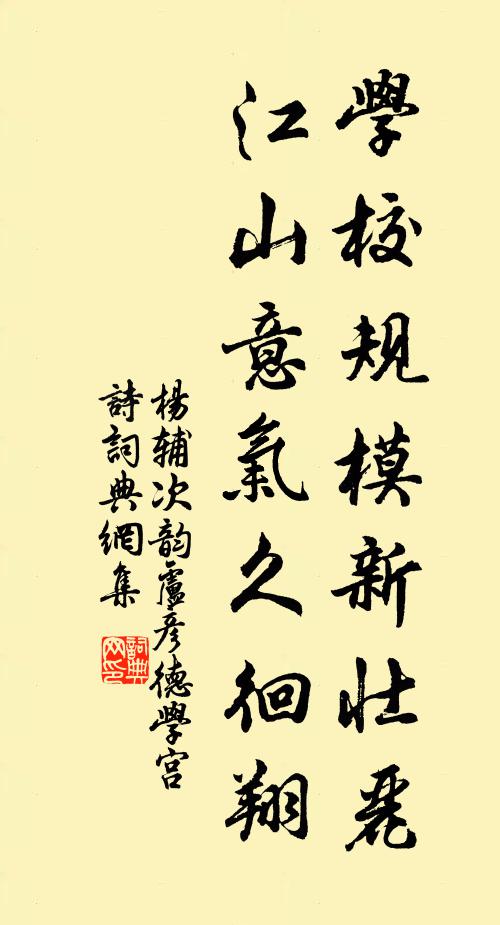 學校規模新壯麗
江山意氣久徊翔
楊輔次韵盧彦德學宮
詩詞典網集
詞典
网印